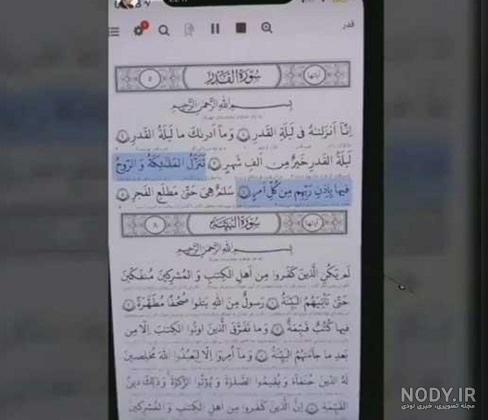 قدر
سورة القدر
بسم الله الرحمن الرحیم
اِنّا اَنزَلنٰهُ فی لَیلَةِ القَدرِ ۱ وَ ما اَدرىٰكَ ما لَیلَةُ القَدرِ ۲
لَیلَةُ القَدرِ خَیرٌ مِن اَلفِ شَهرٍ ۳ تَنَزَّلُ المَلٰئِكَةُ وَ الرّوحُ
فیها بِاِذنِ رَبِّهِم مِن كُلِّ اَمرٍ ۴ سَلٰمٌ هِیَ حَتّىٰ مَطلَعِ الفَجرِ ۵
سورة البینة
بسم الله الرحمن الرحیم
لَم یَكُنِ الَّذینَ كَفَروا مِن اَهلِ الكِتٰبِ وَ المُشرِكینَ مُنفَكّینَ
حَتّىٰ تَأتِیَهُمُ البَیِّنَةُ ۱ رَسولٌ مِنَ اللهِ یَتلو صُحُفًا مُطَهَّرَةً ۲
فیها كُتُبٌ قَیِّمَةٌ ۳ وَ ما تَفَرَّقَ الَّذینَ اوتُوا الكِتٰبَ اِلّا مِن
بَعدِ ما جاءَتهُمُ البَیِّنَةُ ۴ وَ ما اُمِروا اِلّا لِیَعبُدُوا اللهَ مُخلِصینَ
لَهُ الدّینَ حُنَفاءَ وَ یُقیمُوا الصَّلوٰةَ وَ یُؤتُوا الزَّكوٰةَ وَ ذٰلِكَ دینُ
القَیِّمَةِ ۵ اِنَّ الَّذینَ كَفَروا مِن اَهلِ الكِتٰبِ وَ المُشرِكینَ
NODY.IR
مجله تصویری، خبری نودی